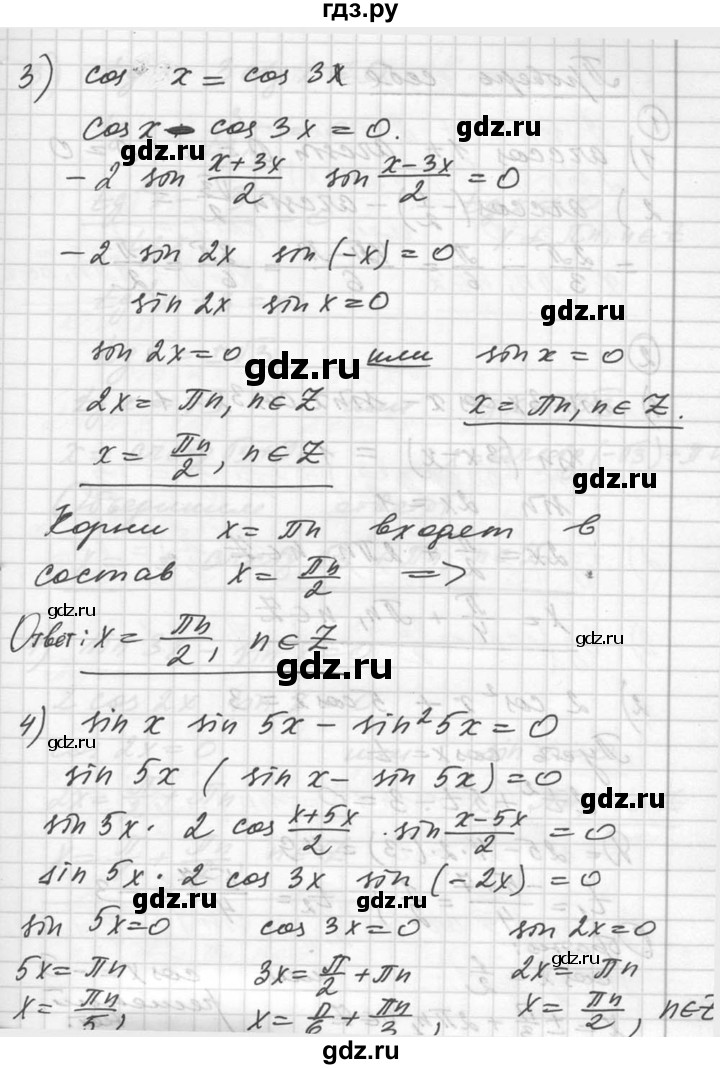 гдз.ру
3) cos x = cos 3x
cos x - cos 3x = 0.
gdz.ru
gdz.ru
-2 sin (x+3x)/2 sin (x-3x)/2 = 0
-2 sin 2x sin (-x) = 0
sin 2x sin x = 0
gdz.ru
sin 2x = 0 или sin x = 0
gdz.ru
2x = πn, n∈Z x = πn, n∈Z.
x = πn/2, n∈Z
gdz.ru
Корни x = πn входят в
состав x = πn/2 =>
gdz.ru
Ответ: x = πn/2, n∈Z
gdz.ru
4) sin x sin 5x - sin²5x = 0
gdz.ru
sin 5x (sin x - sin 5x) = 0
gdz.ru
sin 5x · 2 cos (x+5x)/2 · sin (x-5x)/2 = 0
sin 5x · 2 cos 3x sin (-2x) = 0
gdz.ru
gdz.ru
sin 5x = 0 cos 3x = 0 sin 2x = 0
5x = πn 3x = π/2 + πn 2x = πn
gdz.ru
gdz.ru
x = πn/5, x = π/6 + πn/3 x = πn/2, n∈Z
gdz.ru